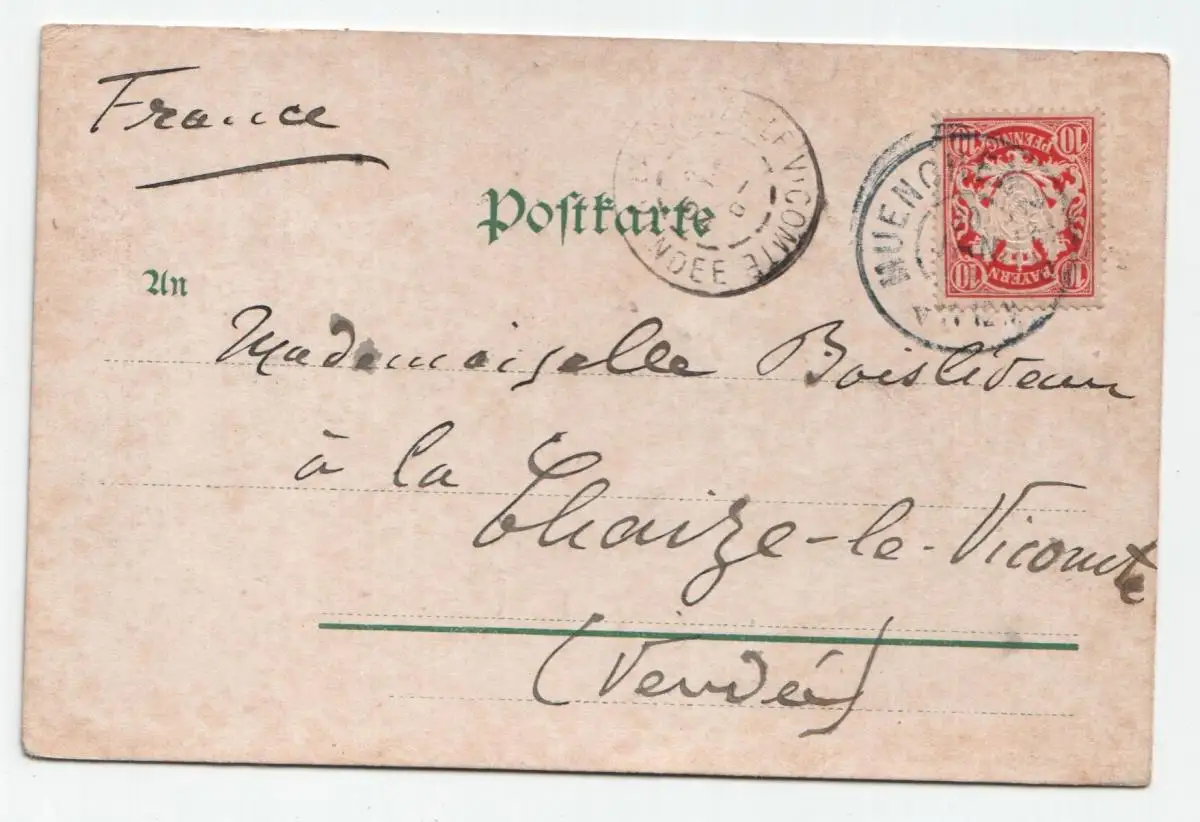 France
Postkarte
An
Mademoiselle Boislideau
à la
Chaize-le-Vicomte
(Vendée)
LE VICOMTE
VENDEE
MUENCHEN
10 PFENNIG 10
10 BAYERN 10